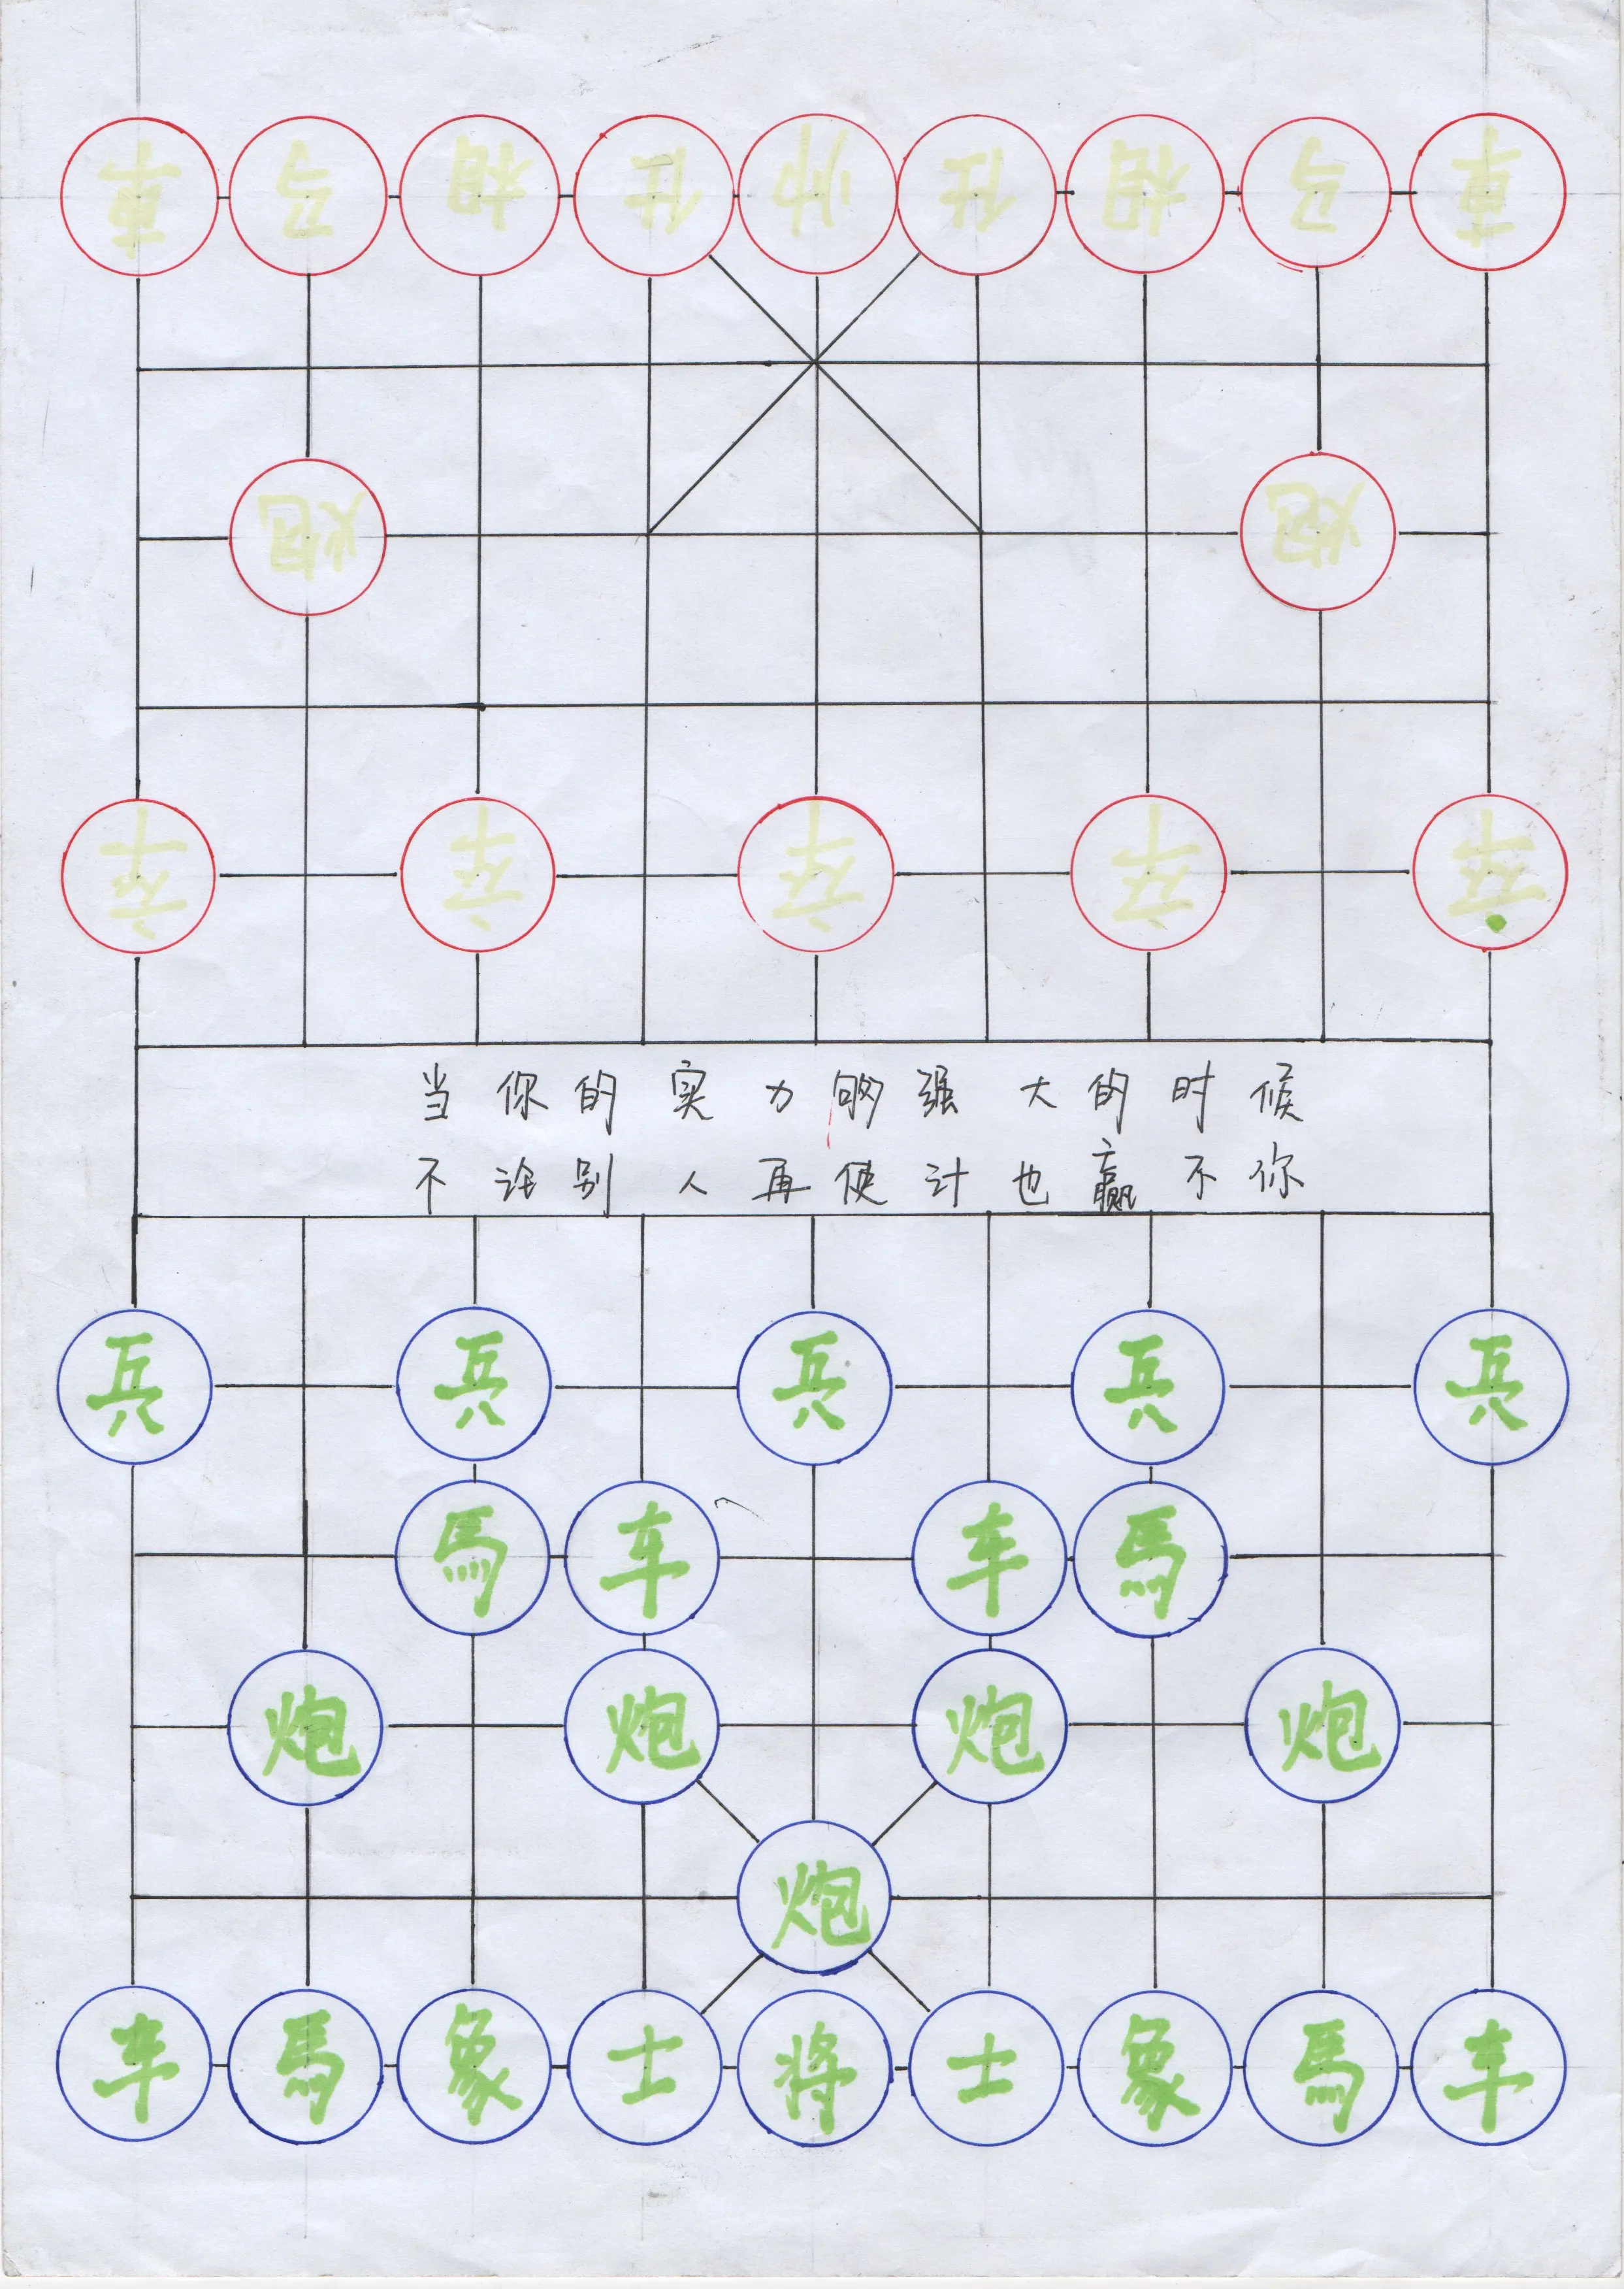 車 马 相 仕 帅 仕 相 马 車
炮 炮
卒 卒 卒 卒 卒
当你的实力够强大的时候
不论别人再使计也赢不你
兵 兵 兵 兵 兵
馬 车 车 馬
炮 炮 炮 炮
炮
车 馬 象 士 将 士 象 馬 车